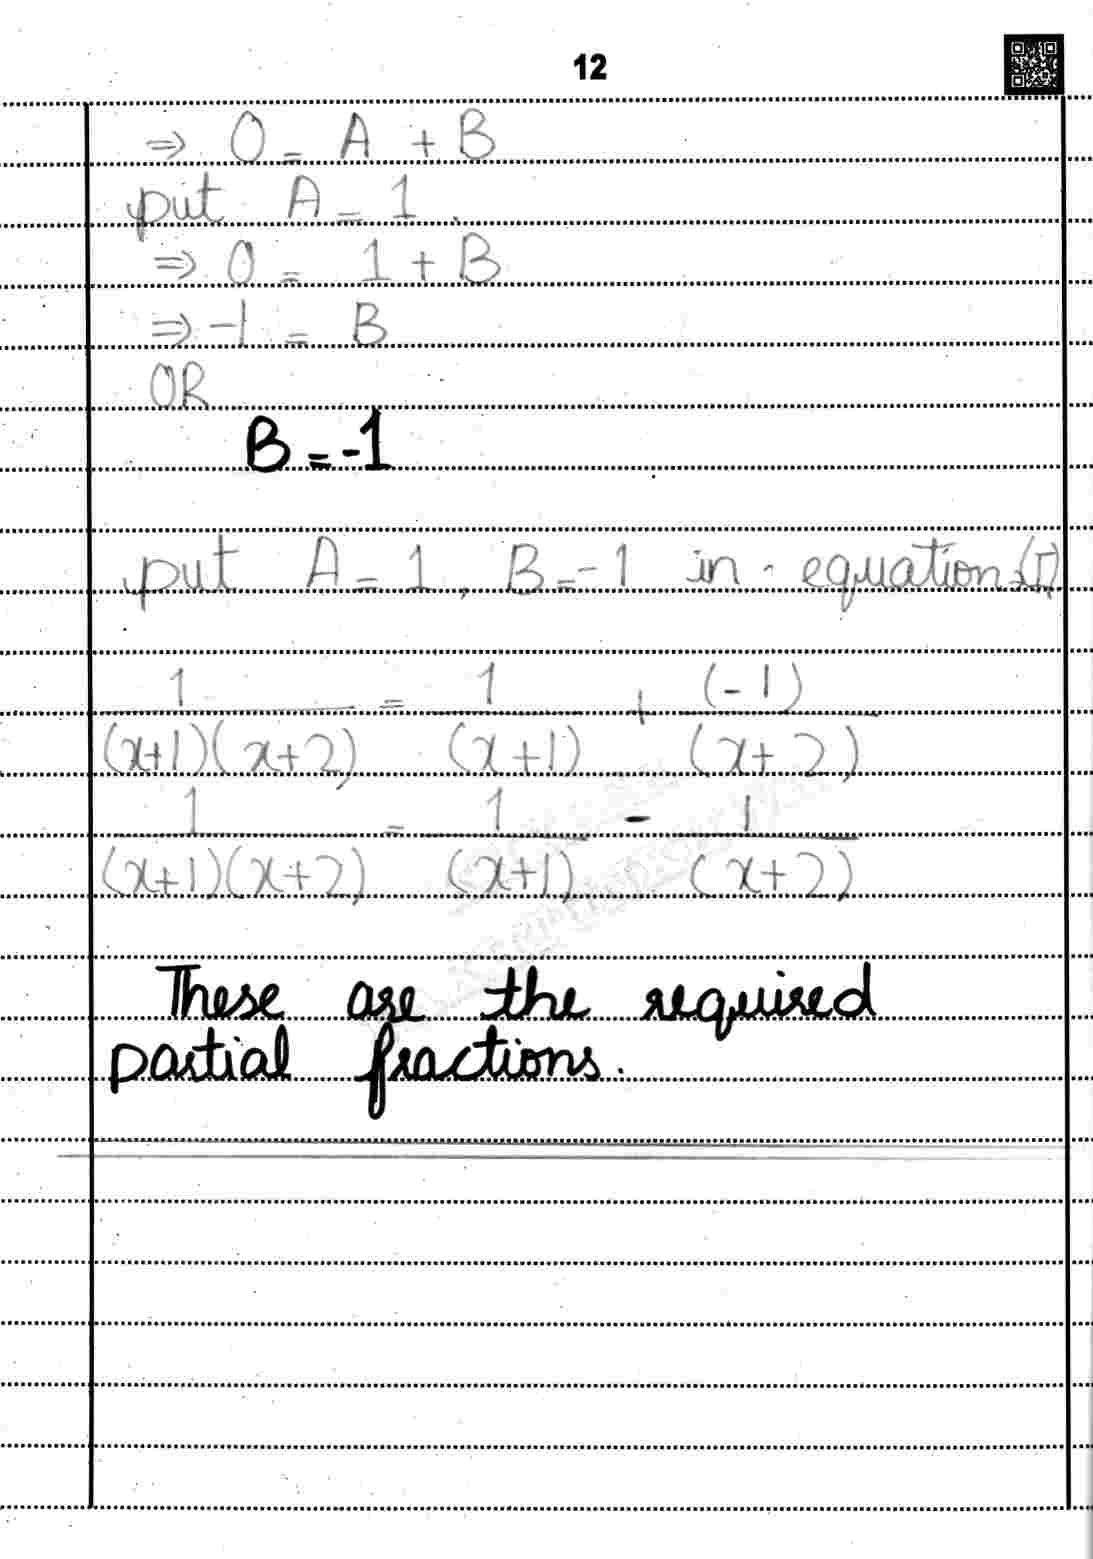 12
⇒ 0 = A + B
put A = 1.
⇒ 0 = 1 + B
⇒ -1 = B
OR
B = -1
put A = 1, B = -1 in equation (I)
1/(x+1)(x+2) = 1/(x+1) + (-1)/(x+2)
1/(x+1)(x+2) = 1/(x+1) - 1/(x+2)
These are the required
partial fractions.